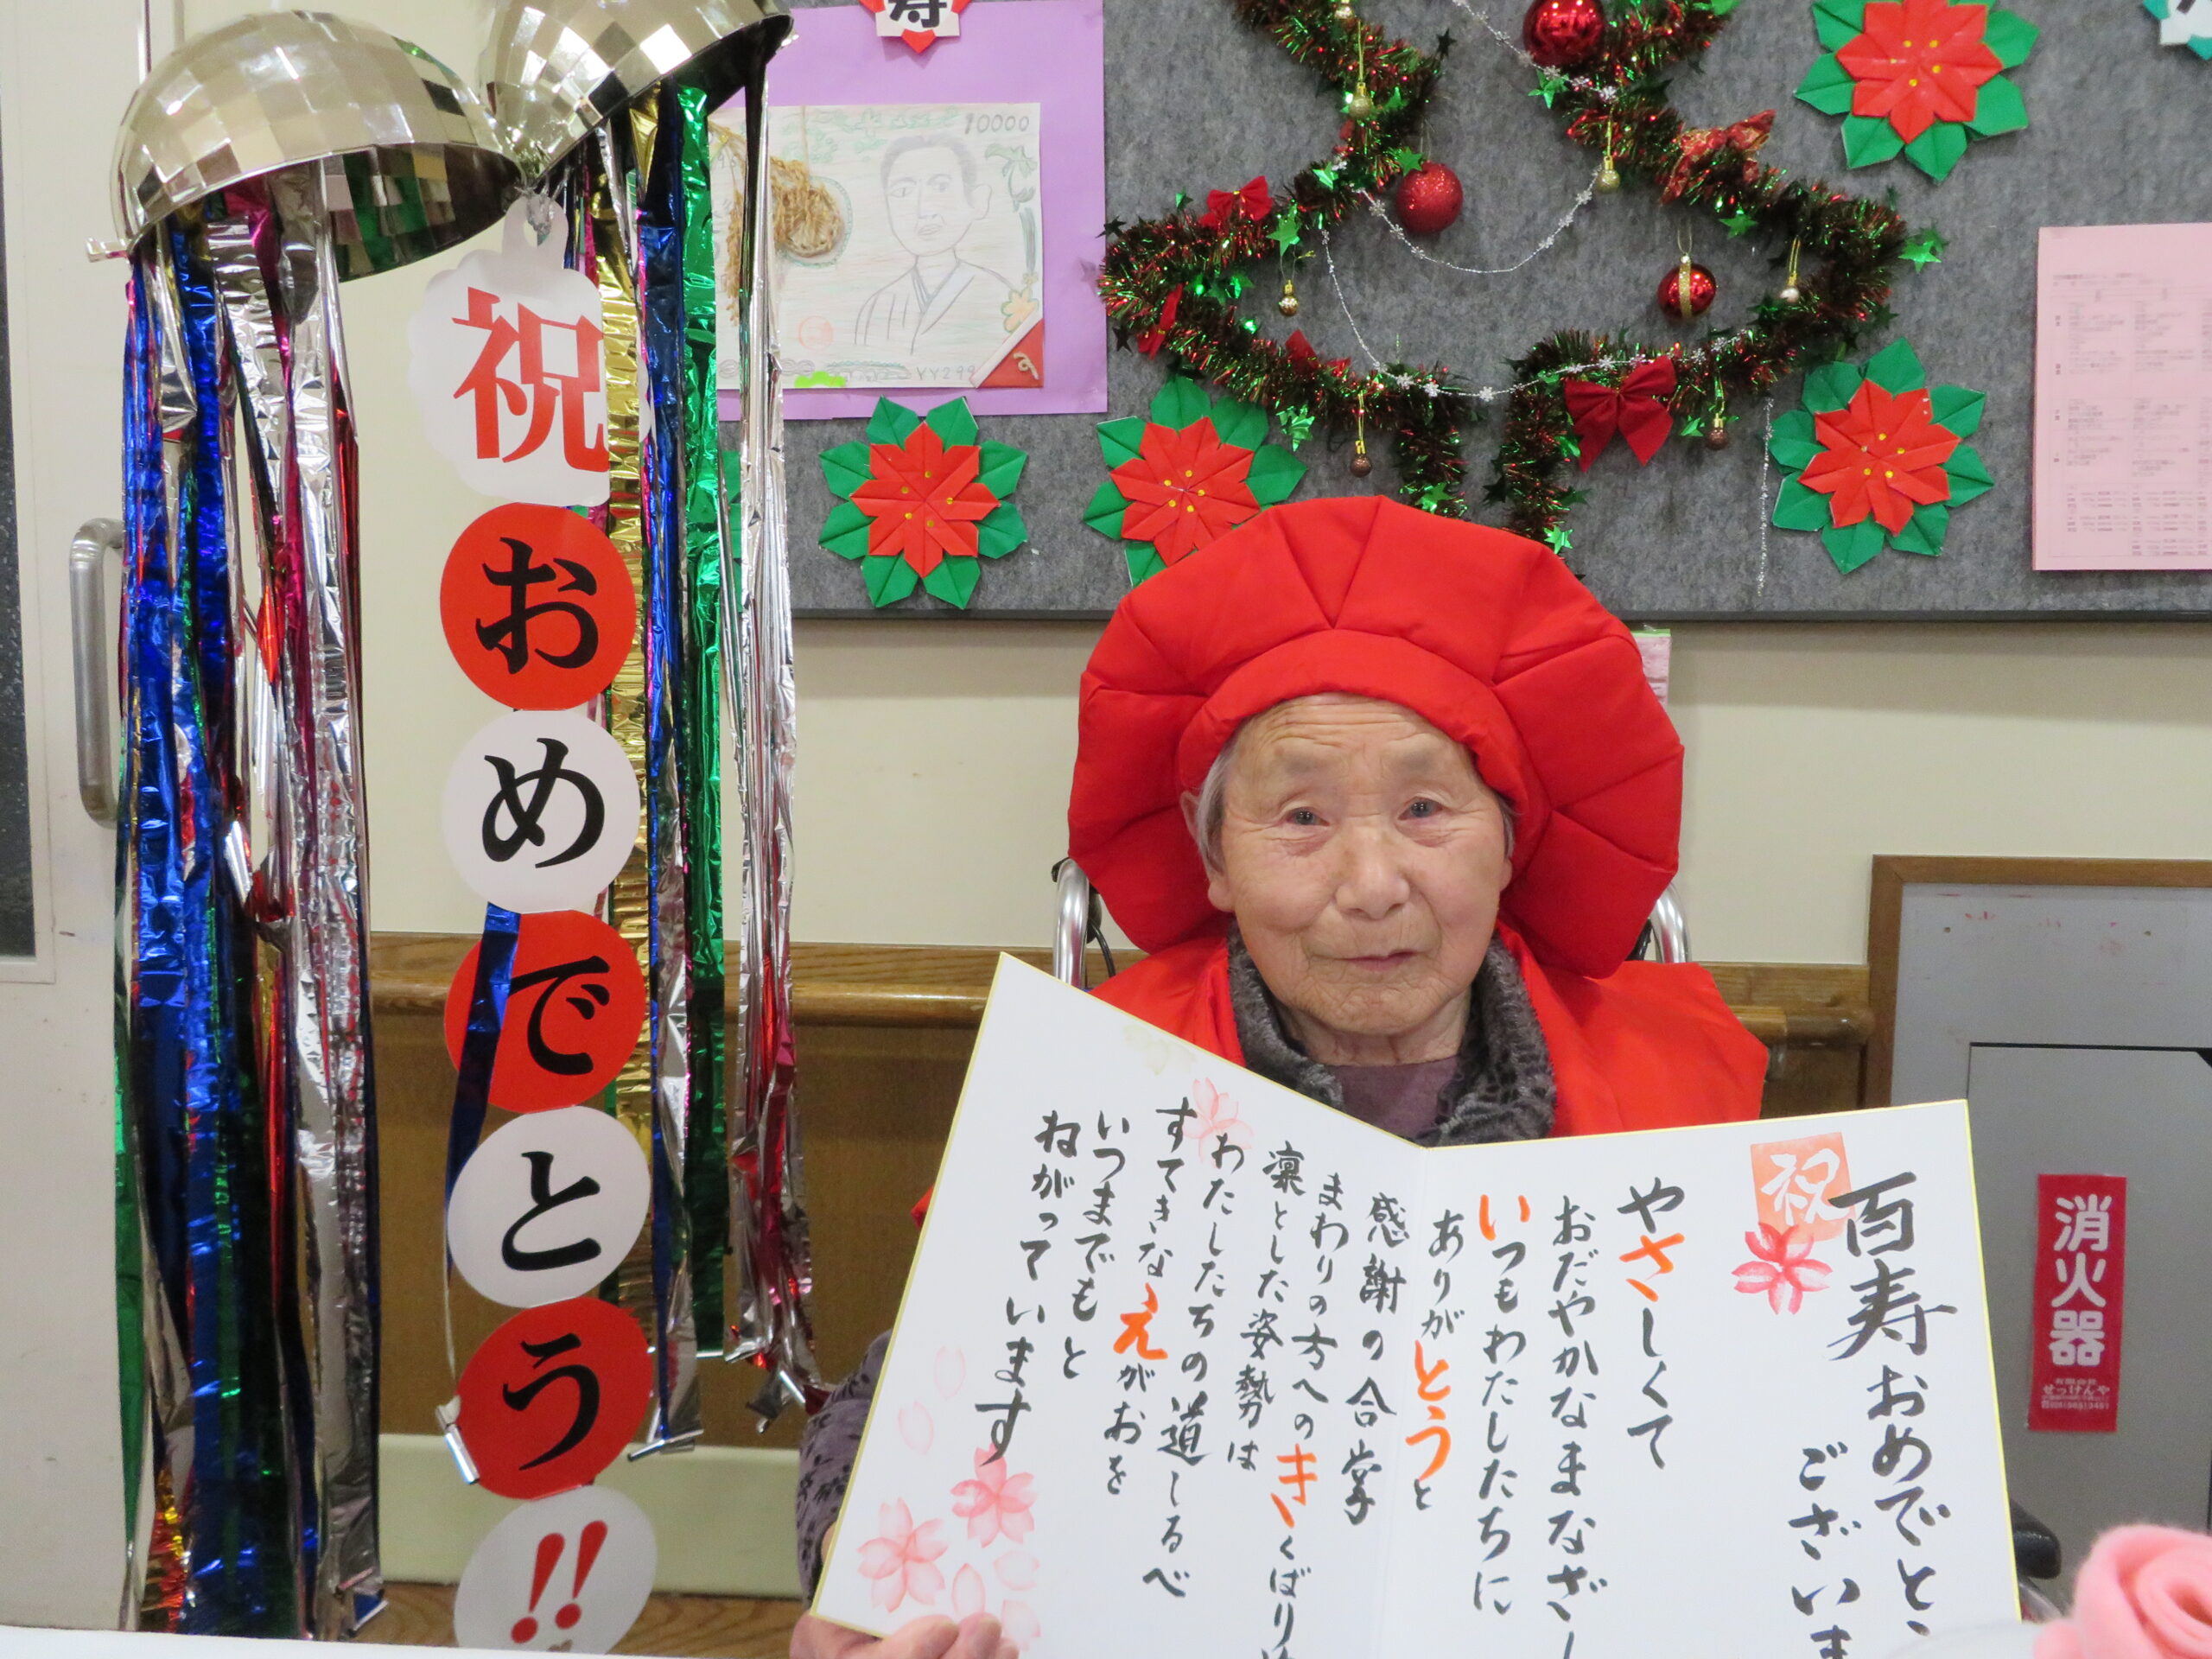 寿
10000
YY299
祝
おめでとう
!!
祝
百寿おめでとう
ございま
やさしくて
おだやかなまなざし
いつもわたしたちに
ありがとうと
感謝の合掌
まわりの方へのきくばり
凛とした姿勢は
わたしたちの道しるべ
すてきなえがおを
いつまでもと
ねがっています
消火器
有限会社
せっけんや